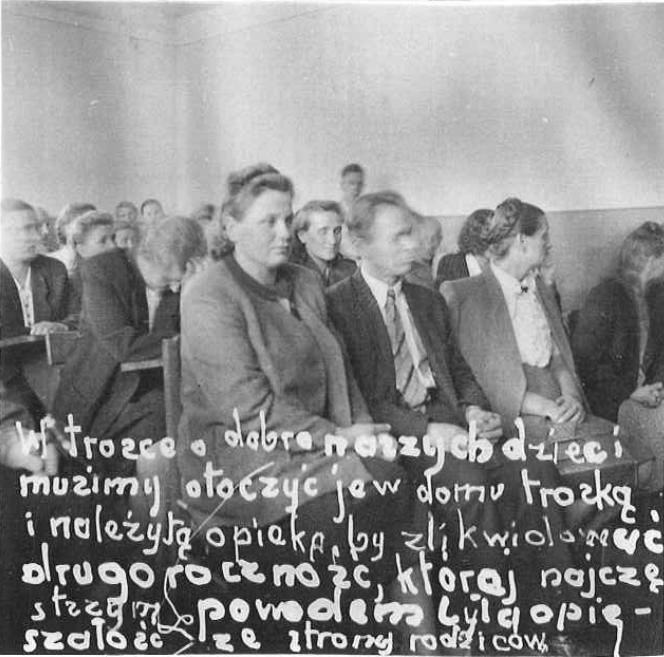 W trosce o dobro naszych dzieci
musimy otoczyć je w domu troską
i należytą opieką, by zlikwidować
drugoroczność, której najczę
stszym powodem była opie-
szałość ze strony rodziców